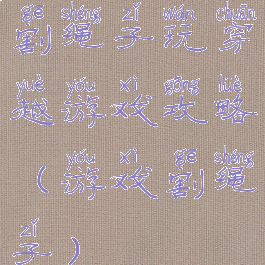 gē shéng zǐ wán chuān
割绳子玩穿
yuè yóu xì gōng lüè
越游戏攻略
yóu xì gē shéng
（游戏割绳
zǐ
子）